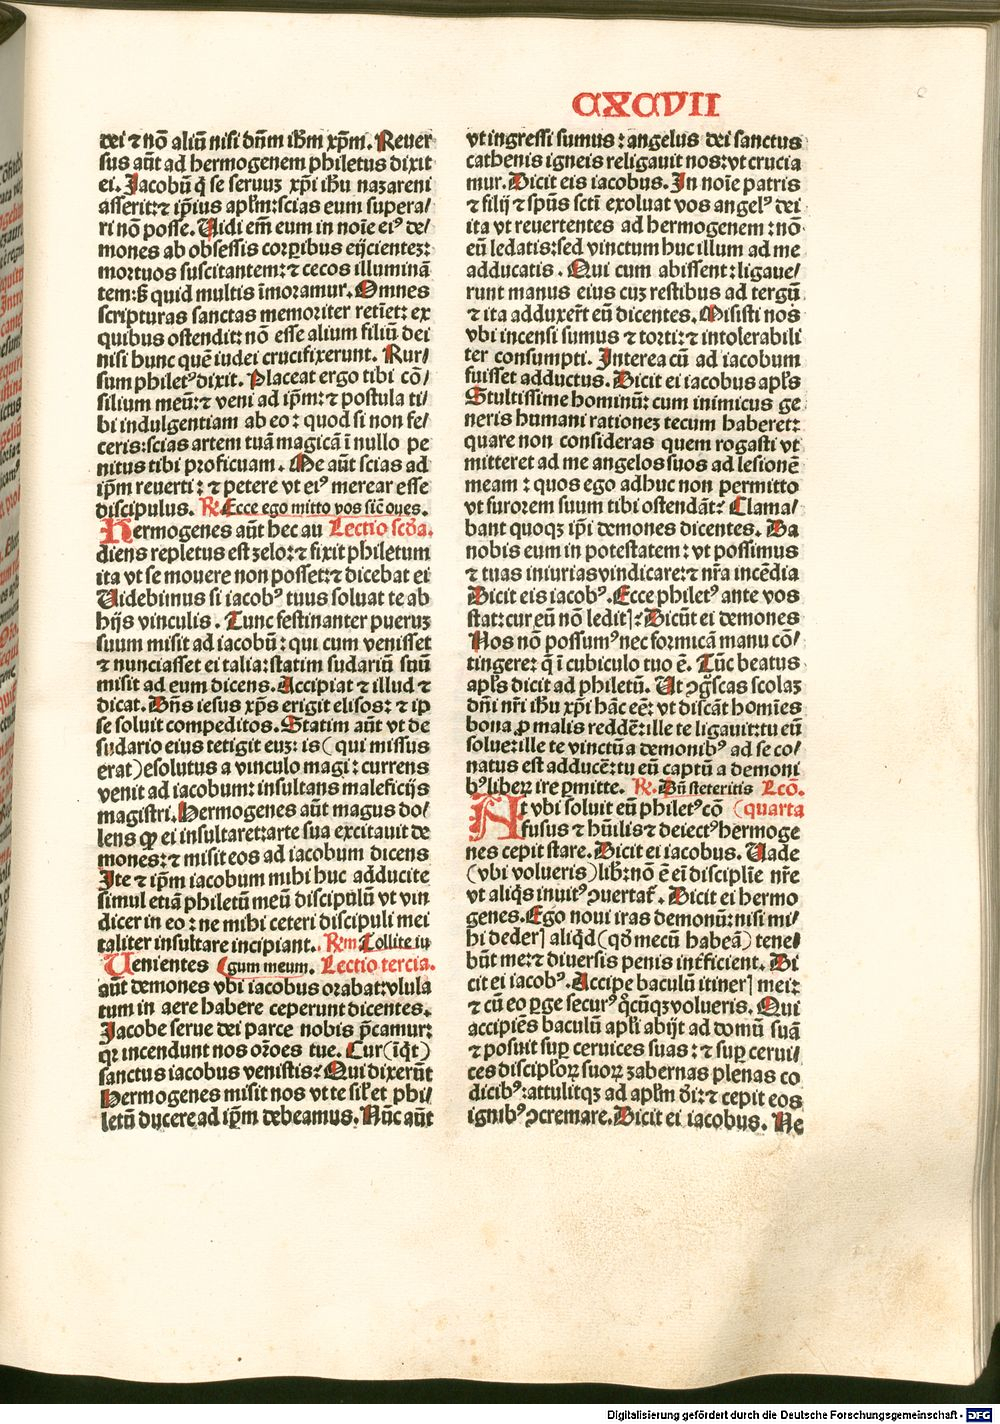 CXCVII
dei ⁊ nõ aliũ nisi dñm ihm̃ xp̃m. Reuer
sus aũt ad hermogenem philetus dixit
ei. Jacobũ q̃ se seruuꝫ xp̃i ihũ nazareni
asserit: ⁊ ip̃ius apl̃m: scias eum supera/
ri nõ posse. Uidi em̃ eum in noĩe eiꝰ de/
mones ab obsessis corꝑibus eijcientez:
mortuos suscitantem: ⁊ cecos illuminã
tem: sꝫ quid multis ĩmoramur. Omnes
scripturas sanctas memoriter retiet̃: ex
quibus ostendit: nõ esse alium filiũ dei
nisi hunc quẽ iudei crucifixerunt. Rur/
sum philetꝰ dixit. Placeat ergo tibi cõ/
silium meũ: ⁊ veni ad ip̃m: ⁊ postula ti/
bi indulgentiam ab eo: quod si non fe/
ceris: scias artem tuã magicã ĩ nullo pe
nitus tibi proficuam. Me aũt scias ad
ip̃m reuerti: ⁊ petere vt eiꝰ merear esse
discipulus. R̃. Ecce ego mitto vos sic̃ oues.
Hermogenes aũt hec au Lectio scd̃a.
diens repletus est zelo: ⁊ fixit philetum
ita vt se mouere non posset: ⁊ dicebat ei
Uidebimus si iacobꝰ tuus soluat te ab
hijs vinculis. Tunc festinanter pueruꝫ
suum misit ad iacobũ: qui cum venisset
⁊ nunciasset ei talia: statim sudariũ suũ
misit ad eum dicens. Accipiat ⁊ illud ⁊
dicat. Dñs iesus xp̃s erigit elisos: ⁊ ip
se soluit compeditos. Statim aũt vt de
sudario eius tetigit euꝫ: is (qui missus
erat) esolutus a vinculo magi: currens
venit ad iacobum: insultans maleficijs
magistri. Hermogenes aũt magus do/
lens ꝙ ei insultaret: arte sua excitauit de
mones: ⁊ misit eos ad iacobum dicens
Ite ⁊ ip̃m iacobum mihi huc adducite
simul etiã philetũ meũ discipulũ vt vin
dicer in eo: ne mihi ceteri discipuli mei
taliter insultare incipiant. R̃m Tollite iu
Uenientes (gum meum. Lectio tercia.
aũt demones vbi iacobus orabat: vlula
tum in aere habere ceperunt dicentes.
Jacobe serue dei parce nobis p̃camur:
qꝛ incendunt nos orões tue. Cur (ĩq̃t)
sanctus iacobus venistis: Qui dixerũt
Hermogenes misit nos vt te sil̃ et phi/
letũ ducere ad ip̃m debeamus. Nũc aũt
vt ingressi sumus: angelus dei sanctus
cathenis igneis religauit nos: vt crucia
mur. Dicit eis iacobus. In noĩe patris
⁊ filij ⁊ sp̃us sct̃i exoluat vos angelꝰ dei
ita vt reuertentes ad hermogenem: nõ
eũ ledatis: sed vinctum huc illum ad me
adducatis. Qui cum abissent: ligaue/
runt manus eius cuꝫ restibus ad tergũ
⁊ ita adduxer̃t eũ dicentes. Misisti nos
vbi incensi sumus ⁊ torti: ⁊ intolerabili
ter consumpti. Interea cũ ad iacobum
fuisset adductus. Dicit ei iacobus apl̃s
Stultissime hominũ: cum inimicus ge
neris humani rationeꝫ tecum haberet:
quare non consideras quem rogasti vt
mitteret ad me angelos suos ad lesionẽ
meam: quos ego adhuc non permitto
vt furorem suum tibi ostendãt: Clama/
bant quoqꝫ ip̃i demones dicentes. Da
nobis eum in potestatem: vt possimus
⁊ tuas iniurias vindicare: ⁊ nr̃a incẽdia
Dicit eis iacobꝰ. Ecce philetꝰ ante vos
stat: cur eũ nõ leditꝭ: Dicũt ei demones
Nos nõ possumꝰ nec formicã manu cõ/
tingere: q̃ ĩ cubiculo tuo ẽ. Tũc beatus
apl̃s dicit ad philetũ. Ut ꝯgᷤcas scolaꝫ
dñi nr̃i ihũ xp̃i hãc eẽ: vt discãt homĩes
bona ꝓ malis reddẽ: ille te ligauit: tu eũ
solue: ille te vinctũ a demonibꝰ ad se co/
natus est adducẽ: tu eũ captũ a demoni
bꝰ liberꝫ ire ꝑmitte. R̃. Dũ steteritis Lcõ.
At vbi soluit eũ philetꝰ cõ (quarta
fusus ⁊ hũilis ⁊ deiectꝰ hermoge
nes cepit stare. Dicit ei iacobus. Uade
(vbi volueris) lib̃: nõ ẽ ei᷑ disciplĩe nr̃e
vt aliq̃s inuitꝰ ꝯuertat̃. Dicit ei hermo
genes. Ego noui iras demonũ: nisi mi/
hi dederꝭ aliq̃d (qð mecũ habeã) tene/
bũt me: ⁊ diuersis penis inťficient. Di
cit ei iacobꝰ. Accipe baculũ itinerꝭ mei:
⁊ cũ eo ꝑge securꝰ q̊cũqꝫ volueris. Qui
accipiẽs baculũ apl̃i abijt ad domũ suã
⁊ posuit suꝑ ceruices suas: ⁊ suꝑ cerui/
ces discipl̃oꝝ suoꝝ zabernas plenas co
dicibꝰ: attulitqꝫ ad apl̃m dei: ⁊ cepit eos
ignibꝰ ꝯcremare. Dicit ei iacobus. Ne
Digitalisierung gefördert durch die Deutsche Forschungsgemeinschaft - DFG